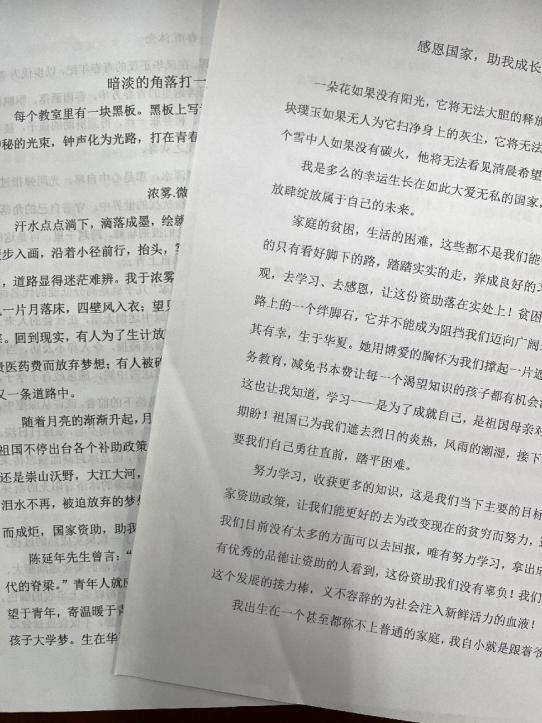 暗淡的角落打一
每个教室里有一块黑板。黑板上写
秘的光束，钟声化为光路，打在青春
浓雾.微
汗水点点淌下，滴落成墨，绘就
步入画，沿着小径前行，抬头，
，道路显得迷茫难辨。我于浓雾
一片月落床，四壁风入衣；望见
。回到现实，有人为了生计放
医药费而放弃梦想；有人被
又一条道路中。
随着月亮的渐渐升起，月
祖国不停出台各个补助政策
还是崇山沃野，大江大河，
泪水不再，被迫放弃的梦想
而成炬，国家资助，助我
陈延年先生曾言：“
代的脊梁。”青年人就应
望于青年，寄温暖于青
孩子大学梦。生在华
感恩国家，助我成长
一朵花如果没有阳光，它将无法大胆的释放
块璞玉如果无人为它扫净身上的灰尘，它将无法
个雪中人如果没有碳火，他将无法看见清晨希望
我是多么的幸运生长在如此大爱无私的国家，
放肆绽放属于自己的未来。
家庭的贫困，生活的困难，这些都不是我们能
的只有看好脚下的路，踏踏实实的走，养成良好的习
观，去学习、去感恩，让这份资助落在实处上！贫困
路上的一个绊脚石，它并不能成为阻挡我们迈向广阔
其有幸，生于华夏。她用博爱的胸怀为我们撑起一片
务教育，减免书本费让每一个渴望知识的孩子都有机会
这也让我知道，学习——是为了成就自己，是祖国母亲对
期盼！祖国已为我们遮去烈日的炎热，风雨的潮湿，接下
要我们自己勇往直前，踏平困难。
努力学习，收获更多的知识，这是我们当下主要的目标
家资助政策，让我们能更好的去为改变现在的贫穷而努力，
我们目前没有太多的方面可以去回报，唯有努力学习，拿出
有优秀的品德让资助的人看到，这份资助我们没有辜负！我们
这个发展的接力棒，义不容辞的为社会注入新鲜活力的血液！
我出生在一个甚至都称不上普通的家庭，我自小就是跟着爷